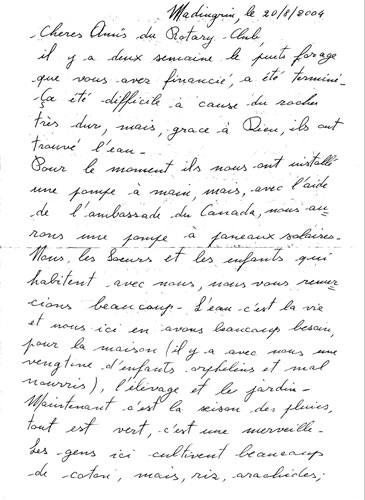 Madingrin, le 20/8/2004
Cheres Amis du Rotary-Club,
il y a deux semaine le puits forage
que vous avez financié, a été terminé.
Ça été difficile à cause du rocher
très dur, mais, grace à Dieu, ils ont
trouvé l'eau.
Pour le moment ils nous ont installé
une pompe à main, mais, avec l'aide
de l'ambassade du Canada, nous au-
rons une pompe à paneaux solaires.
Nous, les Soeurs et les enfants qui
habitent avec nous, nous vous remer-
cions beaucoup. L'eau c'est la vie
et nous ici en avons beaucoup besoin,
pour la maison (il y a avec nous une
vengtine d'enfants orphelins et mal
nourris), l'élevage et le jardin.
Maintenant c'est la seison des pluies,
tout est vert, c'est une merveille.
Les gens ici cultivent beaucoup
de coton, mais, riz, arachides;